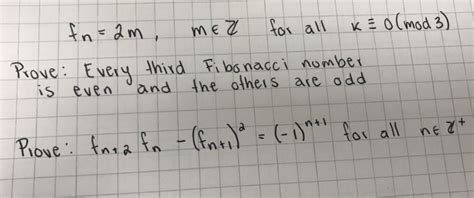 fₙ = 2m , m ∈ ℤ for all k ≡ 0 (mod 3)
Prove: Every third Fibonacci number
is even and the others are odd
Prove: fₙ₊₂ fₙ - (fₙ₊₁)² = (-1)ⁿ⁺¹ for all n ∈ ℤ⁺